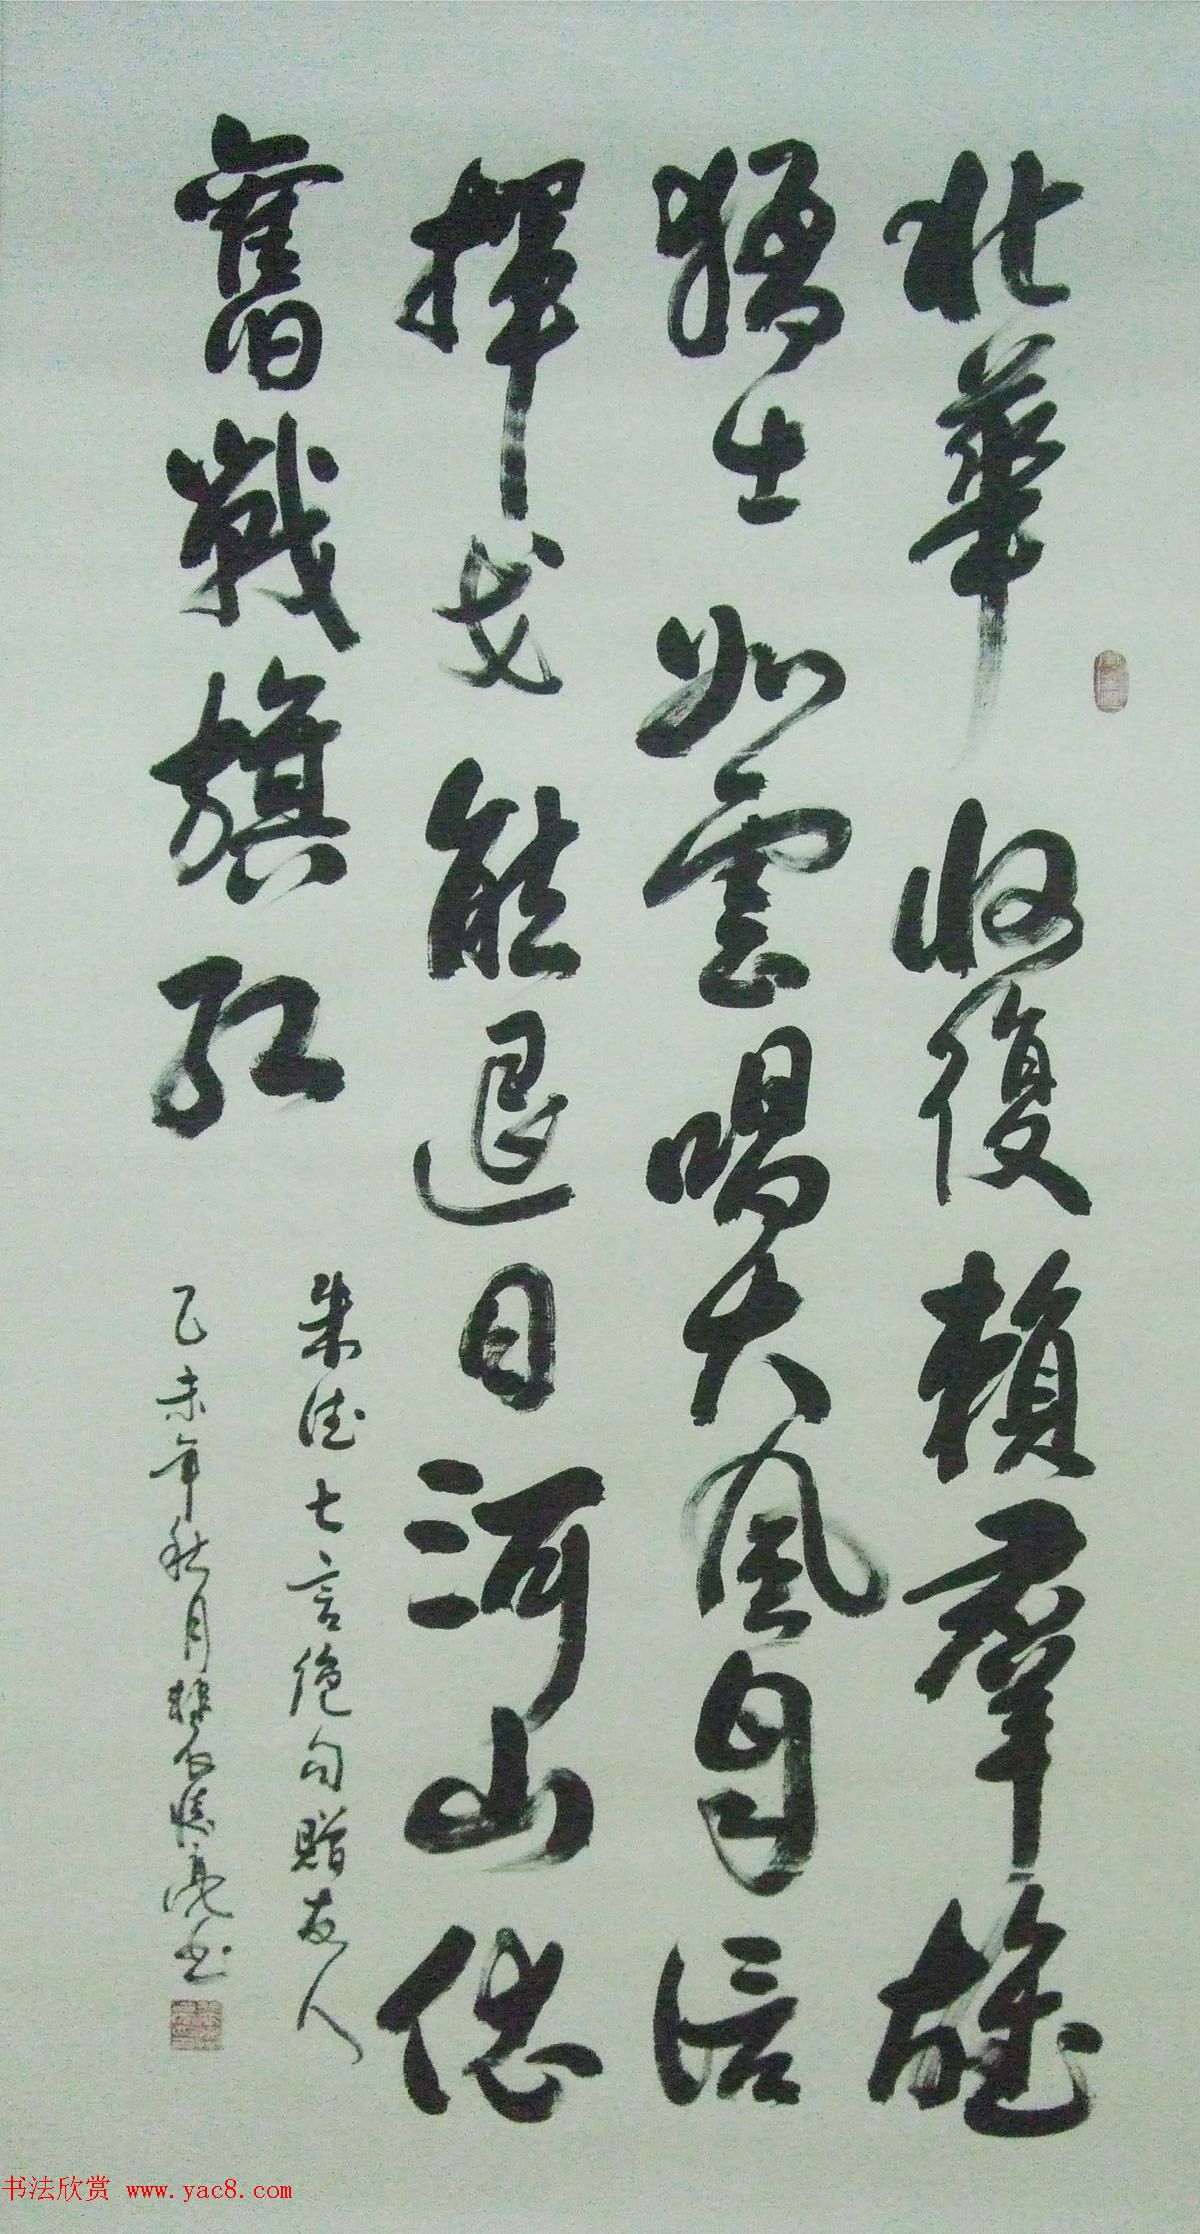 北華收復賴羣雄
猛士如雲唱大風自信
揮戈能退日河山依
舊戰旗紅
朱德七言絶句贈友人
乙未年秋月
书法欣赏 www.yac8.com